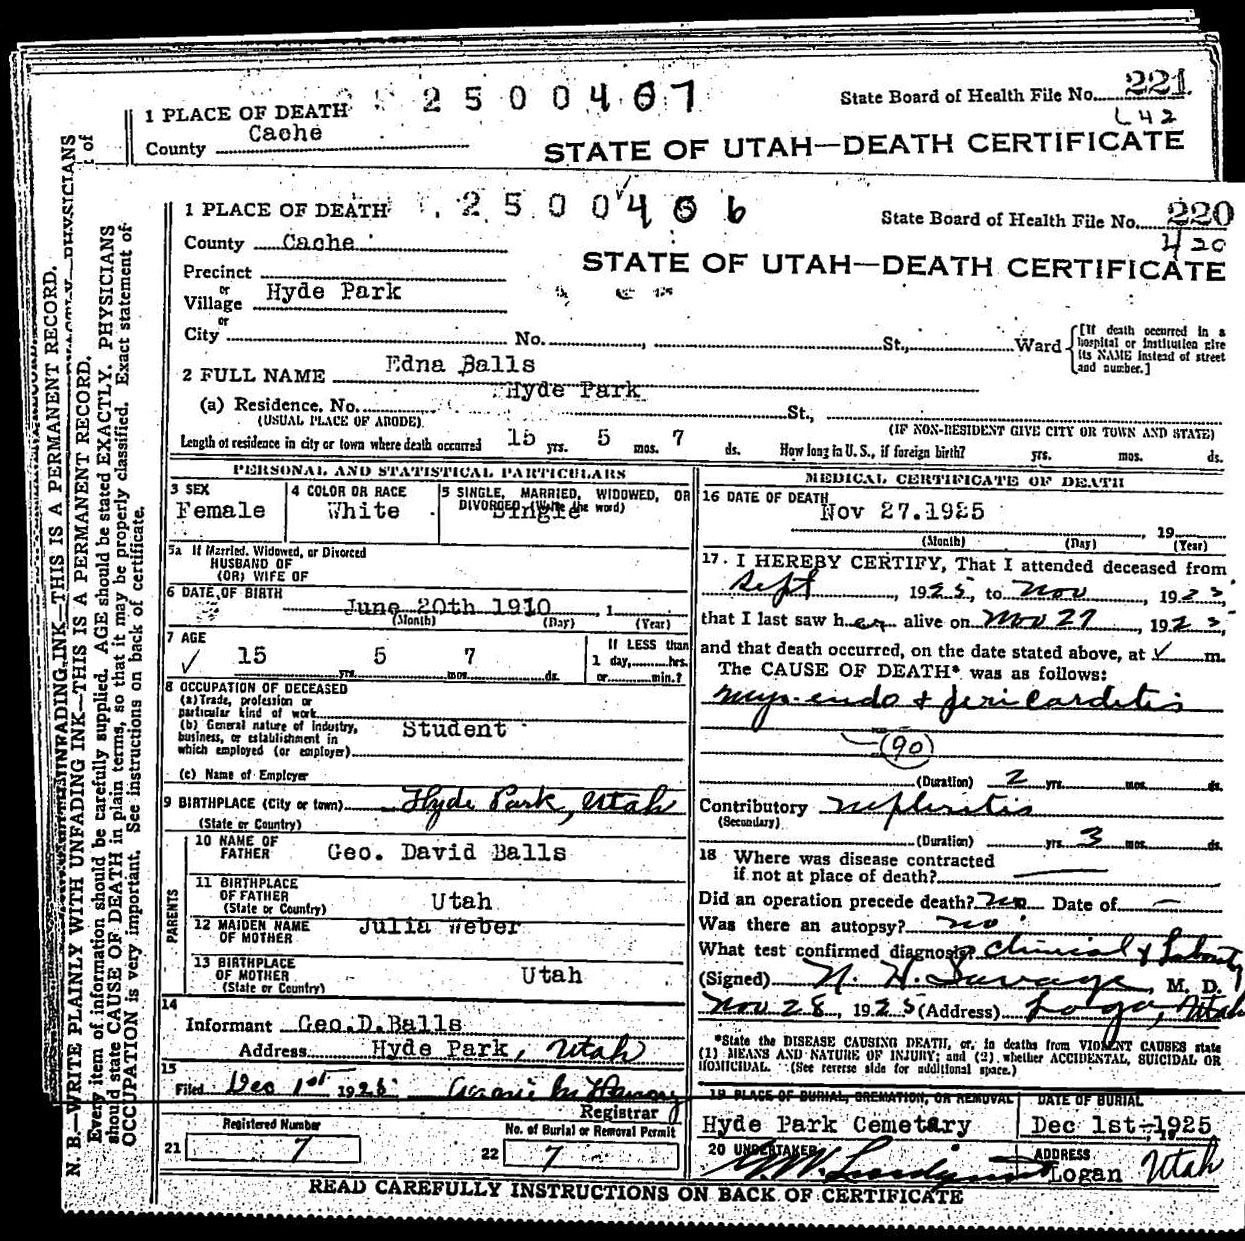 2500467
State Board of Health File No. 221
L42
1 PLACE OF DEATH
County Cache
STATE OF UTAH—DEATH CERTIFICATE
2500466
State Board of Health File No. 220
420
1 PLACE OF DEATH
County Cache
STATE OF UTAH—DEATH CERTIFICATE
Precinct
or
Village Hyde Park
or
City No. , St., Ward
[If death occurred in a
hospital or institution give
its NAME instead of street
and number.]
2 FULL NAME Edna Balls
(a) Residence. No. Hyde Park St.,
(USUAL PLACE OF ABODE) (IF NON-RESIDENT GIVE CITY OR TOWN AND STATE)
Length of residence in city or town where death occurred 15 yrs. 5 mos. 7 ds. How long in U. S., if foreign birth? yrs. mos. ds.
PERSONAL AND STATISTICAL PARTICULARS
3 SEX
Female
4 COLOR OR RACE
White
5 SINGLE, MARRIED, WIDOWED, OR
DIVORCED (Write the word)
Single
5a If Married, Widowed, or Divorced
HUSBAND OF
(OR) WIFE OF
6 DATE OF BIRTH
June 20th 1910 , 1
(Month) (Day) (Year)
7 AGE
✓ 15 yrs. 5 mos. 7 ds.
If LESS than
1 day, hrs.
or min.?
8 OCCUPATION OF DECEASED
(a) Trade, profession or
particular kind of work
(b) General nature of industry,
business, or establishment in
which employed (or employer)
Student
(c) Name of Employer
9 BIRTHPLACE (City or town) Hyde Park, Utah
(State or Country)
PARENTS
10 NAME OF
FATHER Geo. David Balls
11 BIRTHPLACE
OF FATHER
(State or Country) Utah
12 MAIDEN NAME
OF MOTHER Julia Weber
13 BIRTHPLACE
OF MOTHER
(State or Country) Utah
14
Informant Geo.D.Balls
Address Hyde Park, Utah
15
Filed Dec 1st 1925
Registrar
Registered Number
21 7
No. of Burial or Removal Permit
22 7
MEDICAL CERTIFICATE OF DEATH
16 DATE OF DEATH
Nov 27.1925 , 19
(Month) (Day) (Year)
17. I HEREBY CERTIFY, That I attended deceased from
Sept , 1925, to Nov , 1925,
that I last saw her alive on Nov 27 , 1925,
and that death occurred, on the date stated above, at ✓ m.
The CAUSE OF DEATH* was as follows:
Myo-endo & Pericarditis
(90)
(Duration) 2 yrs. mos. ds.
Contributory Nephritis
(Secondary)
(Duration) yrs. 3 mos. ds.
18 Where was disease contracted
if not at place of death?
Did an operation precede death? No Date of —
Was there an autopsy? no
What test confirmed diagnosis? Clinical &
(Signed) N. H. Savage, M. D.
Nov 28, 1925 (Address) Logan, Utah
*State the DISEASE CAUSING DEATH, or, in deaths from VIOLENT CAUSES state
(1) MEANS AND NATURE OF INJURY; and (2) whether ACCIDENTAL, SUICIDAL OR
HOMICIDAL. (See reverse side for additional space.)
19 PLACE OF BURIAL, CREMATION, OR REMOVAL
Hyde Park Cemetary
DATE OF BURIAL
Dec 1st-, 1925
20 UNDERTAKER
ADDRESS
Logan Utah
READ CAREFULLY INSTRUCTIONS ON BACK OF CERTIFICATE
N. B.—WRITE PLAINLY WITH UNFADING INK—THIS IS A PERMANENT RECORD.
Every item of information should be carefully supplied. AGE should be stated EXACTLY. PHYSICIANS
should state CAUSE OF DEATH in plain terms, so that it may be properly classified. Exact statement of
OCCUPATION is very important. See instructions on back of certificate.
UNFADING INK—THIS IS A PERMANENT RECORD.
PHYSICIANS
of